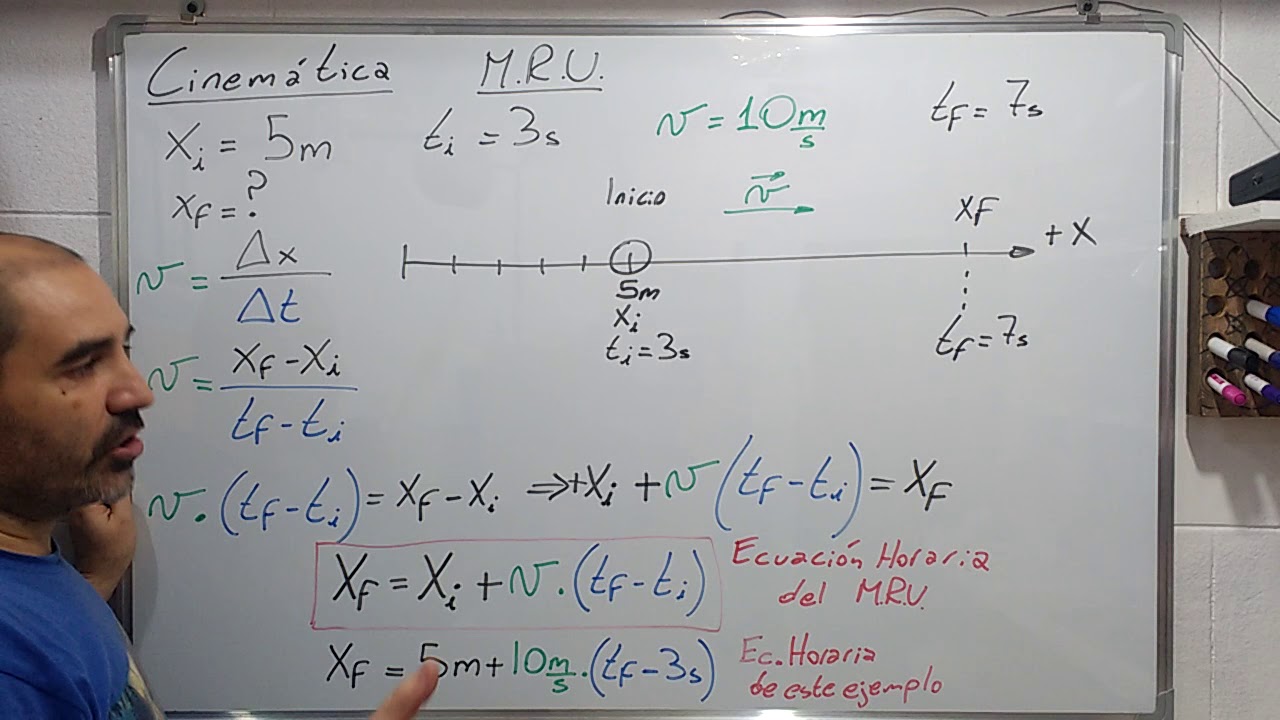 Cinemática M.R.U.
Xi = 5m ti = 3s v = 10 m/s tf = 7s
xf = ?
Inicio v⃗ XF
+X
v = Δx/Δt
5m
Xi
ti = 3s tf = 7s
v = (xf - xi)/(tf - ti)
v . (tf - ti) = xf - xi ⇒ +Xi + v (tf - ti) = XF
Xf = Xi + v . (tf - ti) Ecuación Horaria
del M.R.U.
Xf = 5m + 10 m/s . (tf - 3s) Ec. Horaria
de este ejemplo